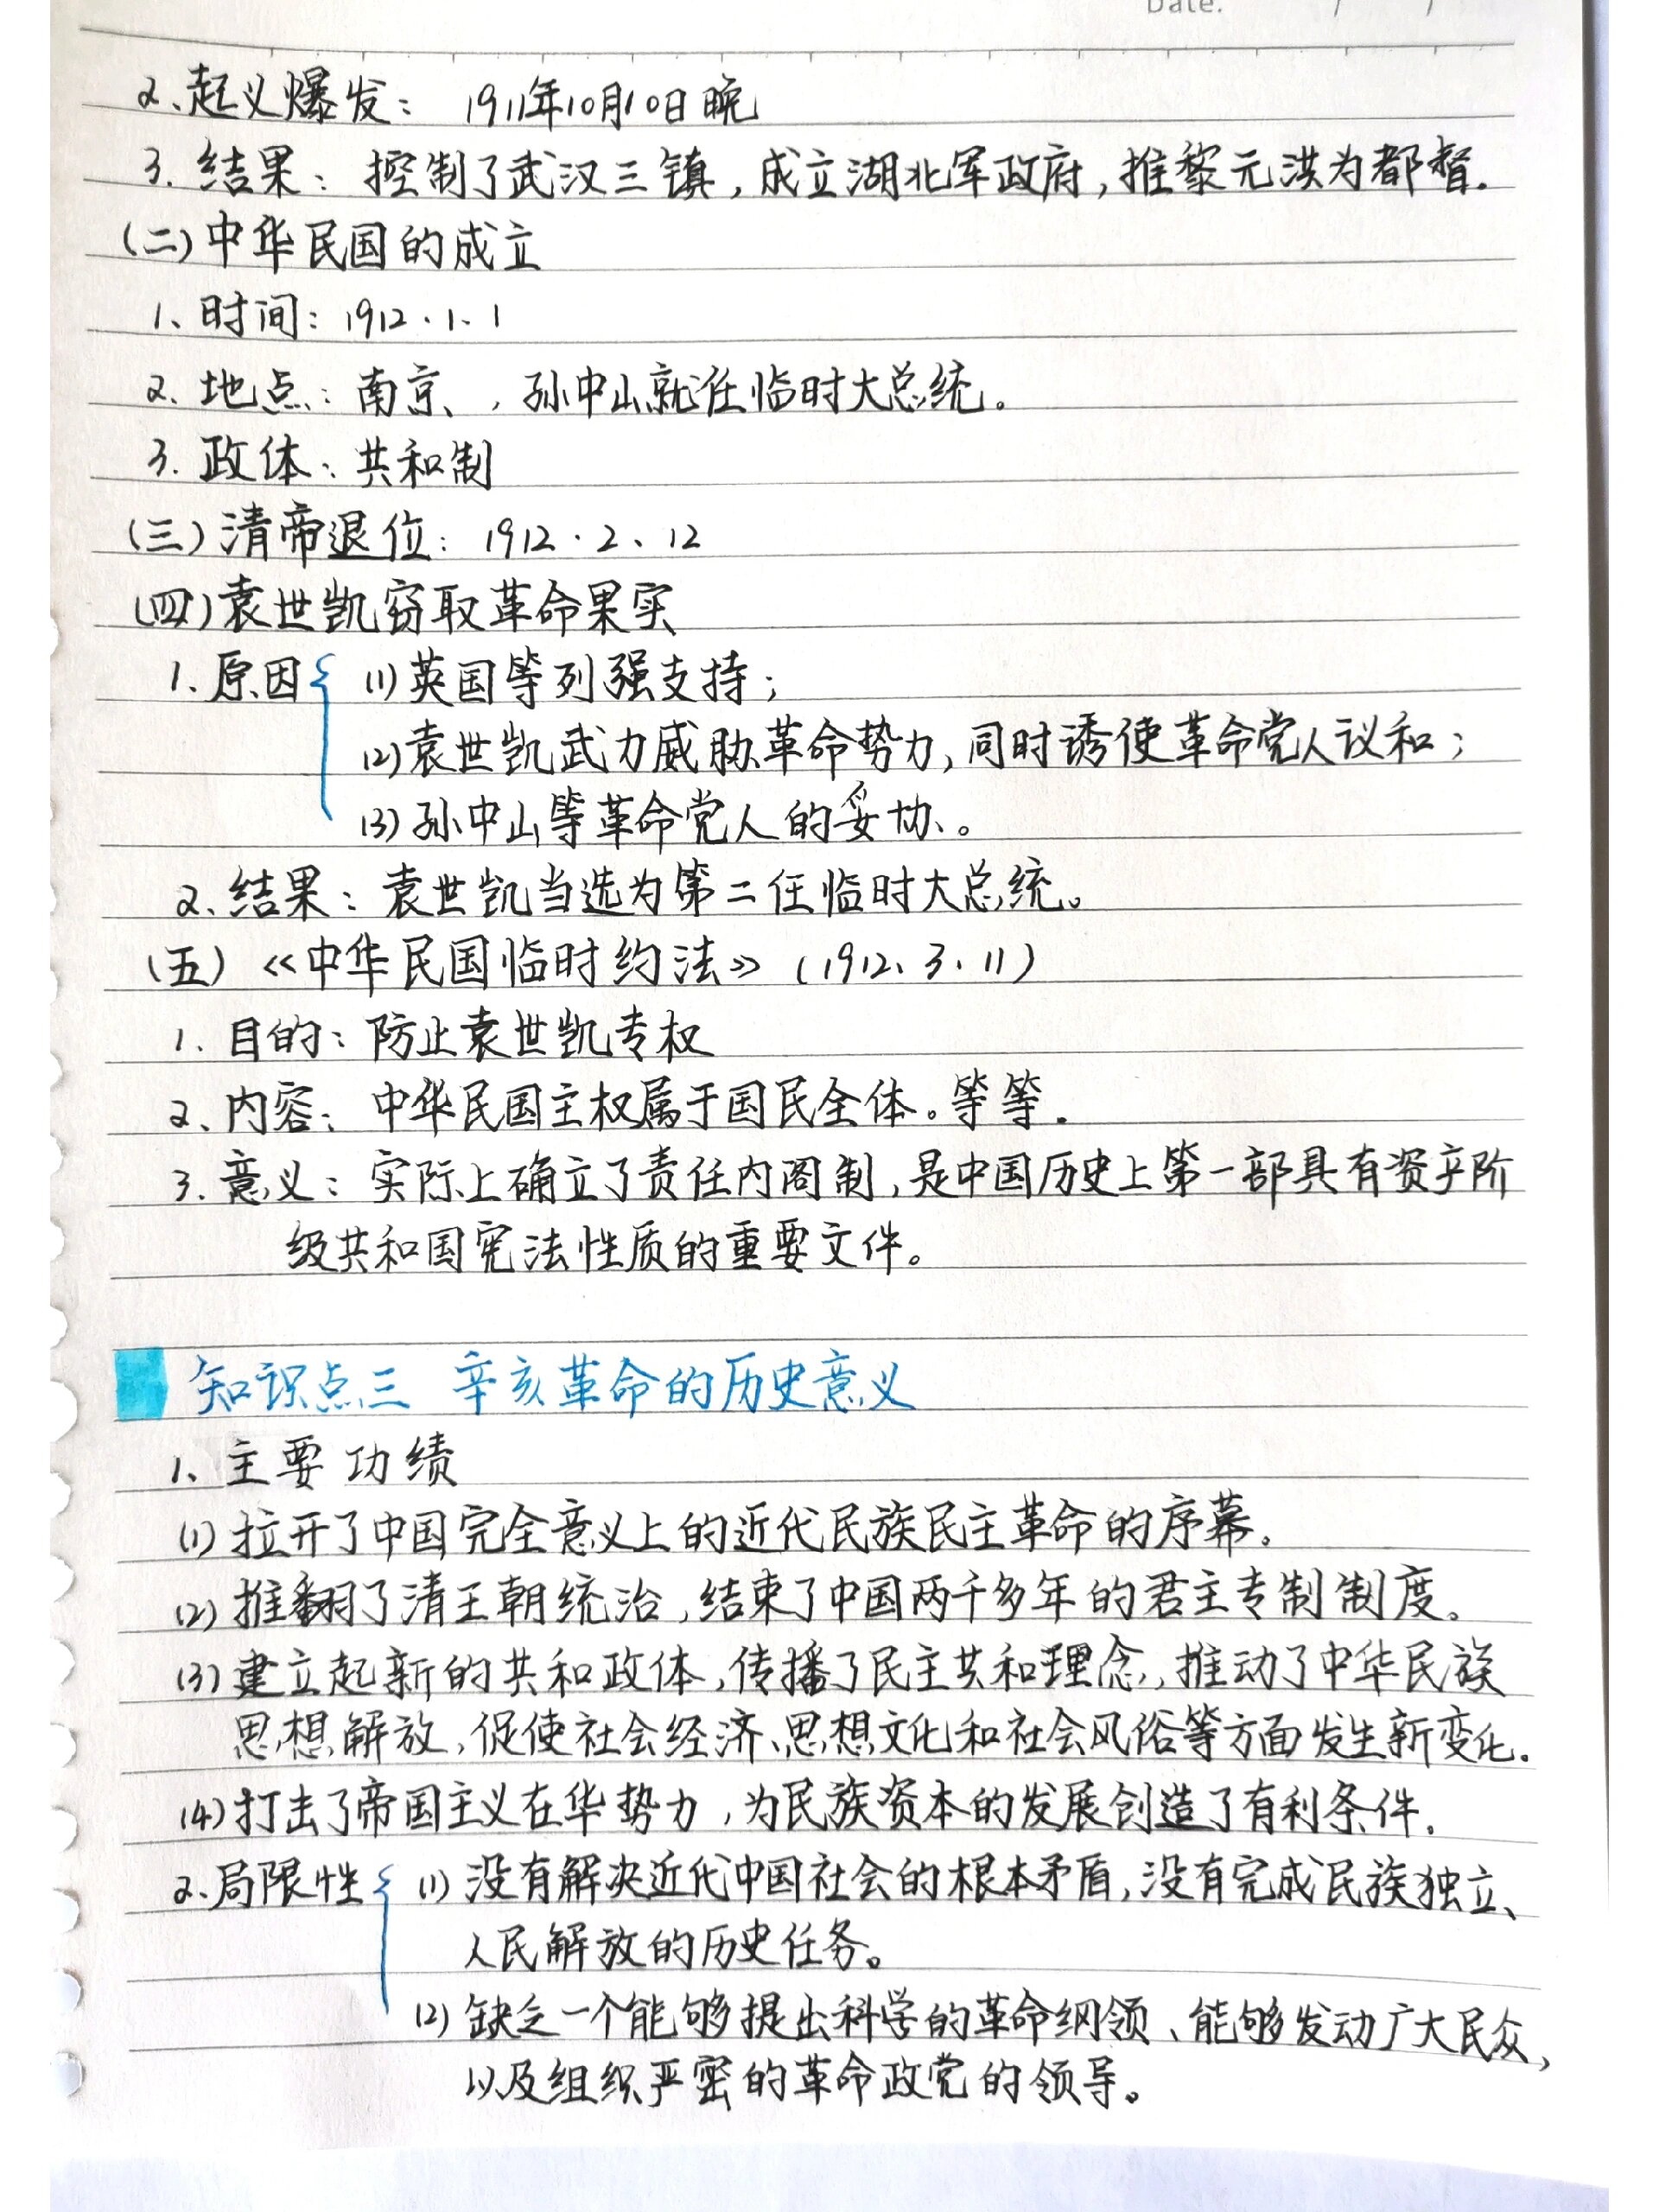 Date. / /
2、起义爆发：1911年10月10日晚
3. 结果：控制了武汉三镇，成立湖北军政府，推黎元洪为都督.
(二)中华民国的成立
1、时间：1912.1.1
2. 地点：南京、，孙中山就任临时大总统。
3. 政体：共和制
(三)清帝退位：1912.2、12
(四)袁世凯窃取革命果实
1.原因 (1)英国等列强支持；
(2)袁世凯武力威胁革命势力，同时诱使革命党人议和；
(3)孙中山等革命党人的妥协。
2、结果：袁世凯当选为第二任临时大总统。
(五)《中华民国临时约法》(1912、3、11)
1. 目的：防止袁世凯专权
2、内容：中华民国主权属于国民全体。等等.
3. 意义：实际上确立了责任内阁制，是中国历史上第一部具有资产阶
级共和国宪法性质的重要文件。
知识点三 辛亥革命的历史意义
1、主要功绩
(1)拉开了中国完全意义上的近代民族民主革命的序幕。
(2)推翻了清王朝统治，结束了中国两千多年的君主专制制度。
(3)建立起新的共和政体，传播了民主共和理念，推动了中华民族
思想解放，促使社会经济、思想文化和社会风俗等方面发生新变化.
(4)打击了帝国主义在华势力，为民族资本的发展创造了有利条件.
2、局限性 (1)没有解决近代中国社会的根本矛盾，没有完成民族独立、
人民解放的历史任务。
(2)缺乏一个能够提出科学的革命纲领、能够发动广大民众，
以及组织严密的革命政党的领导。